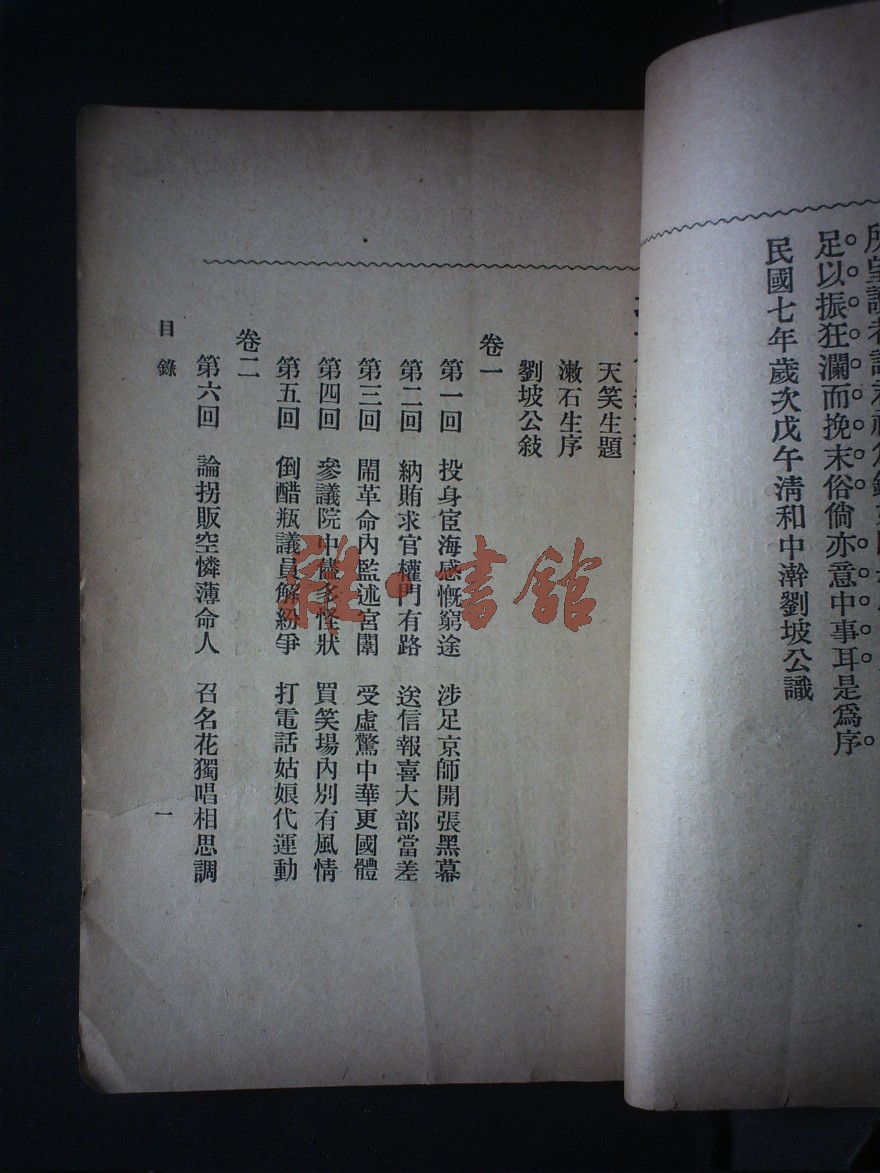 足以振狂瀾而挽末俗倘亦意中事耳是爲序
民國七年歲次戊午清和中澣劉坡公識
天笑生題
漱石生序
劉坡公敍
卷一
第一回　投身宦海感慨窮途　涉足京師開張黑幕
第二回　納賄求官權門有路　送信報喜大部當差
第三回　鬧革命內監述宮闈　受虛驚中華更國體
第四回　參議院中儘多怪狀　買笑場內別有風情
第五回　倒醋瓶議員解紛爭　打電話姑娘代運動
卷二
第六回　論拐販空憐薄命人　召名花獨唱相思調
目錄
一
雜·書館